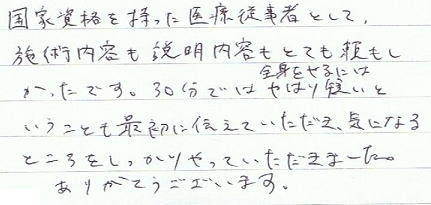 国家資格を持った医療従事者として、
施術内容も説明内容もとても頼もし
全身をやるには
かったです。30分ではやはり短いと
いうことも最初に伝えていただき、気になる
ところをしっかりやっていただきました。
ありがとうございます。